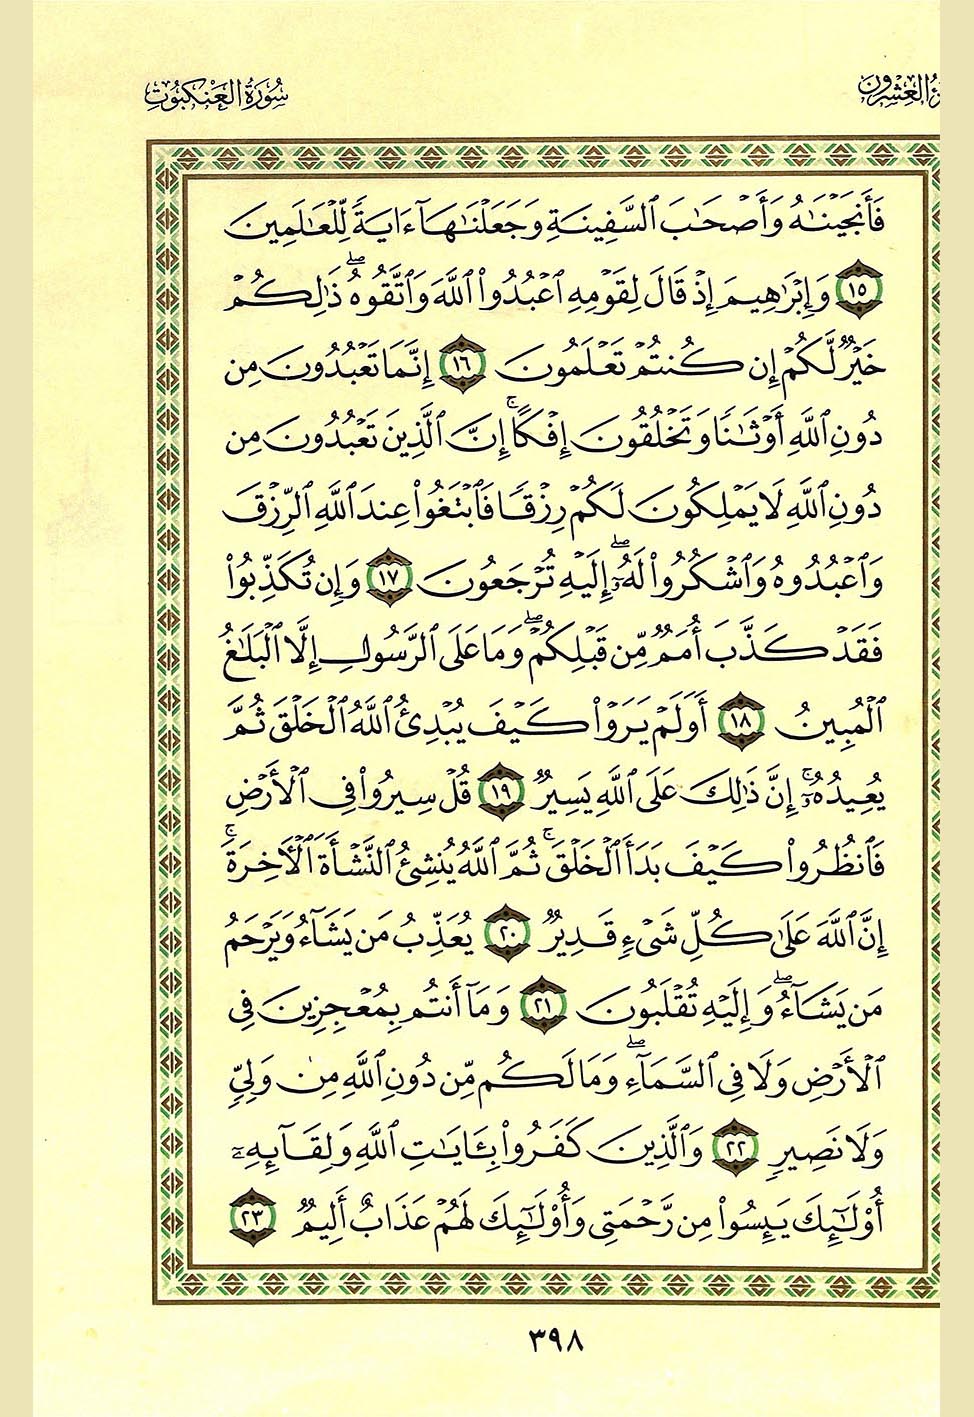 ـزءُ العِشرون
سُورَةُ العَنكَبُوتِ
فَأَنجَيْنَٰهُ وَأَصْحَٰبَ ٱلسَّفِينَةِ وَجَعَلْنَٰهَآ ءَايَةً لِّلْعَٰلَمِينَ
١٥ وَإِبْرَٰهِيمَ إِذْ قَالَ لِقَوْمِهِ ٱعْبُدُوا۟ ٱللَّهَ وَٱتَّقُوهُ ۖ ذَٰلِكُمْ
خَيْرٌ لَّكُمْ إِن كُنتُمْ تَعْلَمُونَ ١٦ إِنَّمَا تَعْبُدُونَ مِن
دُونِ ٱللَّهِ أَوْثَٰنًا وَتَخْلُقُونَ إِفْكًا ۚ إِنَّ ٱلَّذِينَ تَعْبُدُونَ مِن
دُونِ ٱللَّهِ لَا يَمْلِكُونَ لَكُمْ رِزْقًا فَٱبْتَغُوا۟ عِندَ ٱللَّهِ ٱلرِّزْقَ
وَٱعْبُدُوهُ وَٱشْكُرُوا۟ لَهُۥٓ ۖ إِلَيْهِ تُرْجَعُونَ ١٧ وَإِن تُكَذِّبُوا۟
فَقَدْ كَذَّبَ أُمَمٌ مِّن قَبْلِكُمْ ۖ وَمَا عَلَى ٱلرَّسُولِ إِلَّا ٱلْبَلَٰغُ
ٱلْمُبِينُ ١٨ أَوَلَمْ يَرَوْا۟ كَيْفَ يُبْدِئُ ٱللَّهُ ٱلْخَلْقَ ثُمَّ
يُعِيدُهُۥٓ ۚ إِنَّ ذَٰلِكَ عَلَى ٱللَّهِ يَسِيرٌ ١٩ قُلْ سِيرُوا۟ فِى ٱلْأَرْضِ
فَٱنظُرُوا۟ كَيْفَ بَدَأَ ٱلْخَلْقَ ۚ ثُمَّ ٱللَّهُ يُنشِئُ ٱلنَّشْأَةَ ٱلْـَٔاخِرَةَ ۚ
إِنَّ ٱللَّهَ عَلَىٰ كُلِّ شَىْءٍ قَدِيرٌ ٢٠ يُعَذِّبُ مَن يَشَآءُ وَيَرْحَمُ
مَن يَشَآءُ ۖ وَإِلَيْهِ تُقْلَبُونَ ٢١ وَمَآ أَنتُم بِمُعْجِزِينَ فِى
ٱلْأَرْضِ وَلَا فِى ٱلسَّمَآءِ ۖ وَمَا لَكُم مِّن دُونِ ٱللَّهِ مِن وَلِىٍّ
وَلَا نَصِيرٍ ٢٢ وَٱلَّذِينَ كَفَرُوا۟ بِـَٔايَٰتِ ٱللَّهِ وَلِقَآئِهِۦٓ
أُو۟لَٰٓئِكَ يَئِسُوا۟ مِن رَّحْمَتِى وَأُو۟لَٰٓئِكَ لَهُمْ عَذَابٌ أَلِيمٌ ٢٣
٣٩٨